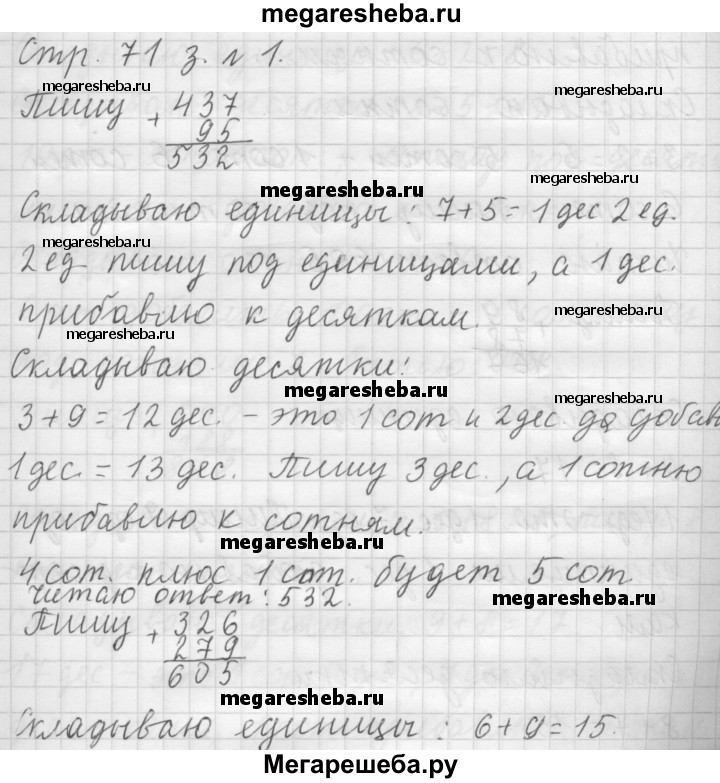 megaresheba.ru
Стр. 71 з. № 1.
megaresheba.ru
megaresheba.ru
Пишу + 437
95
532
megaresheba.ru
megaresheba.ru
Складываю единицы: 7+5=1 дес 2 ед.
megaresheba.ru
2 ед пишу под единицами, а 1 дес.
прибавлю к десяткам.
megaresheba.ru
megaresheba.ru
Складываю десятки:
megaresheba.ru
megaresheba.ru
3+9=12 дес. - это 1 сот и 2 дес да добав
1 дес. = 13 дес. Пишу 3 дес., а 1 сотню
прибавлю к сотням.
megaresheba.ru
4 сот. плюс 1 сот. будет 5 сот
читаю ответ: 532.
megaresheba.ru
Пишу + 326
279
605
megaresheba.ru
Складываю единицы: 6+9=15.
Мегарешеба.ру